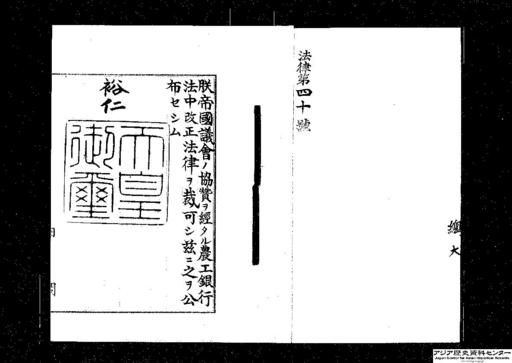 法律第四十號
朕帝國議會ノ協贊ヲ經タル農工銀行
法中改正法律ヲ裁可シ茲ニ之ヲ公
布セシム
裕仁
天皇
御璽
大
内
閣
アジア歴史資料センター
Japan Center for Asian Historical Records